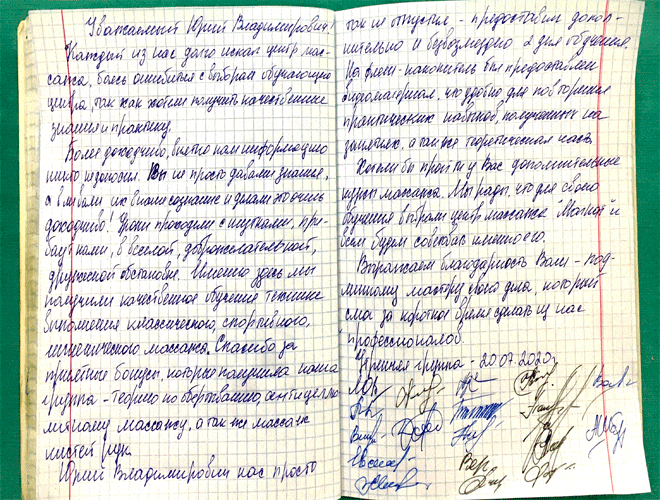 Уважаемый Юрий Владимирович!
Каждый из нас долго искал центр мас-
сажа, боясь ошибиться с выбором обучающего
центра, так как хотели получить качественные
знания и практику.
Более доходчиво, внятно нам информацию
никто не доносил. Вы не просто давали знания,
а вливали их в наше сознание и делали это очень
доходчиво! Уроки проходили с шутками, при-
баутками, в веселой, доброжелательной,
дружеской обстановке. Именно здесь мы
получили качественное обучение технике
выполнения классического, спортивного,
гигиенического массажа. Спасибо за
приятные бонусы, которые получила наша
группа - теорию по обертыванию, антицеллю-
литному массажу, а также массаж
кистей рук.
Юрий Владимирович нас просто
так не отпустил - предоставил допол-
нительно и безвозмездно 2 дня обучения.
На флеш-накопитель был предоставлен
видиоматериал, что удобно для повторения
практических навыков, полученных на
занятиях, а также теоретическая часть.
Хотели бы пройти у Вас дополнительные
курсы массажа. Мы рады, что для своего
обучения выбрали центр массажа и
всем будем советовать именно его.
Выражаем благодарность Вам - под-
линному мастеру своего дела, который
смог за короткое время сделать из нас
профессионалов.
Утренняя группа - 20.07.2020г.